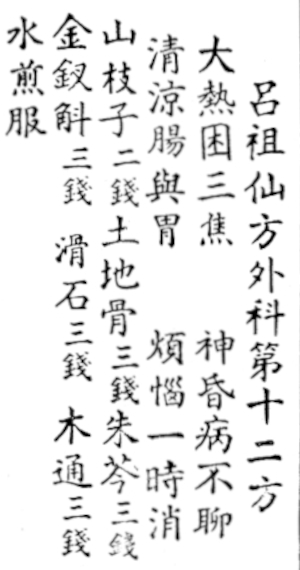 呂祖仙方外科第十二方
大熱困三焦 神昏病不聊
清涼腸與胃 煩惱一時消
山枝子二錢土地骨三錢朱苓三錢
金釵斛三錢 滑石三錢 木通三錢
水煎服